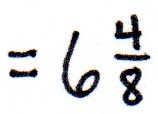 = 6 4/8